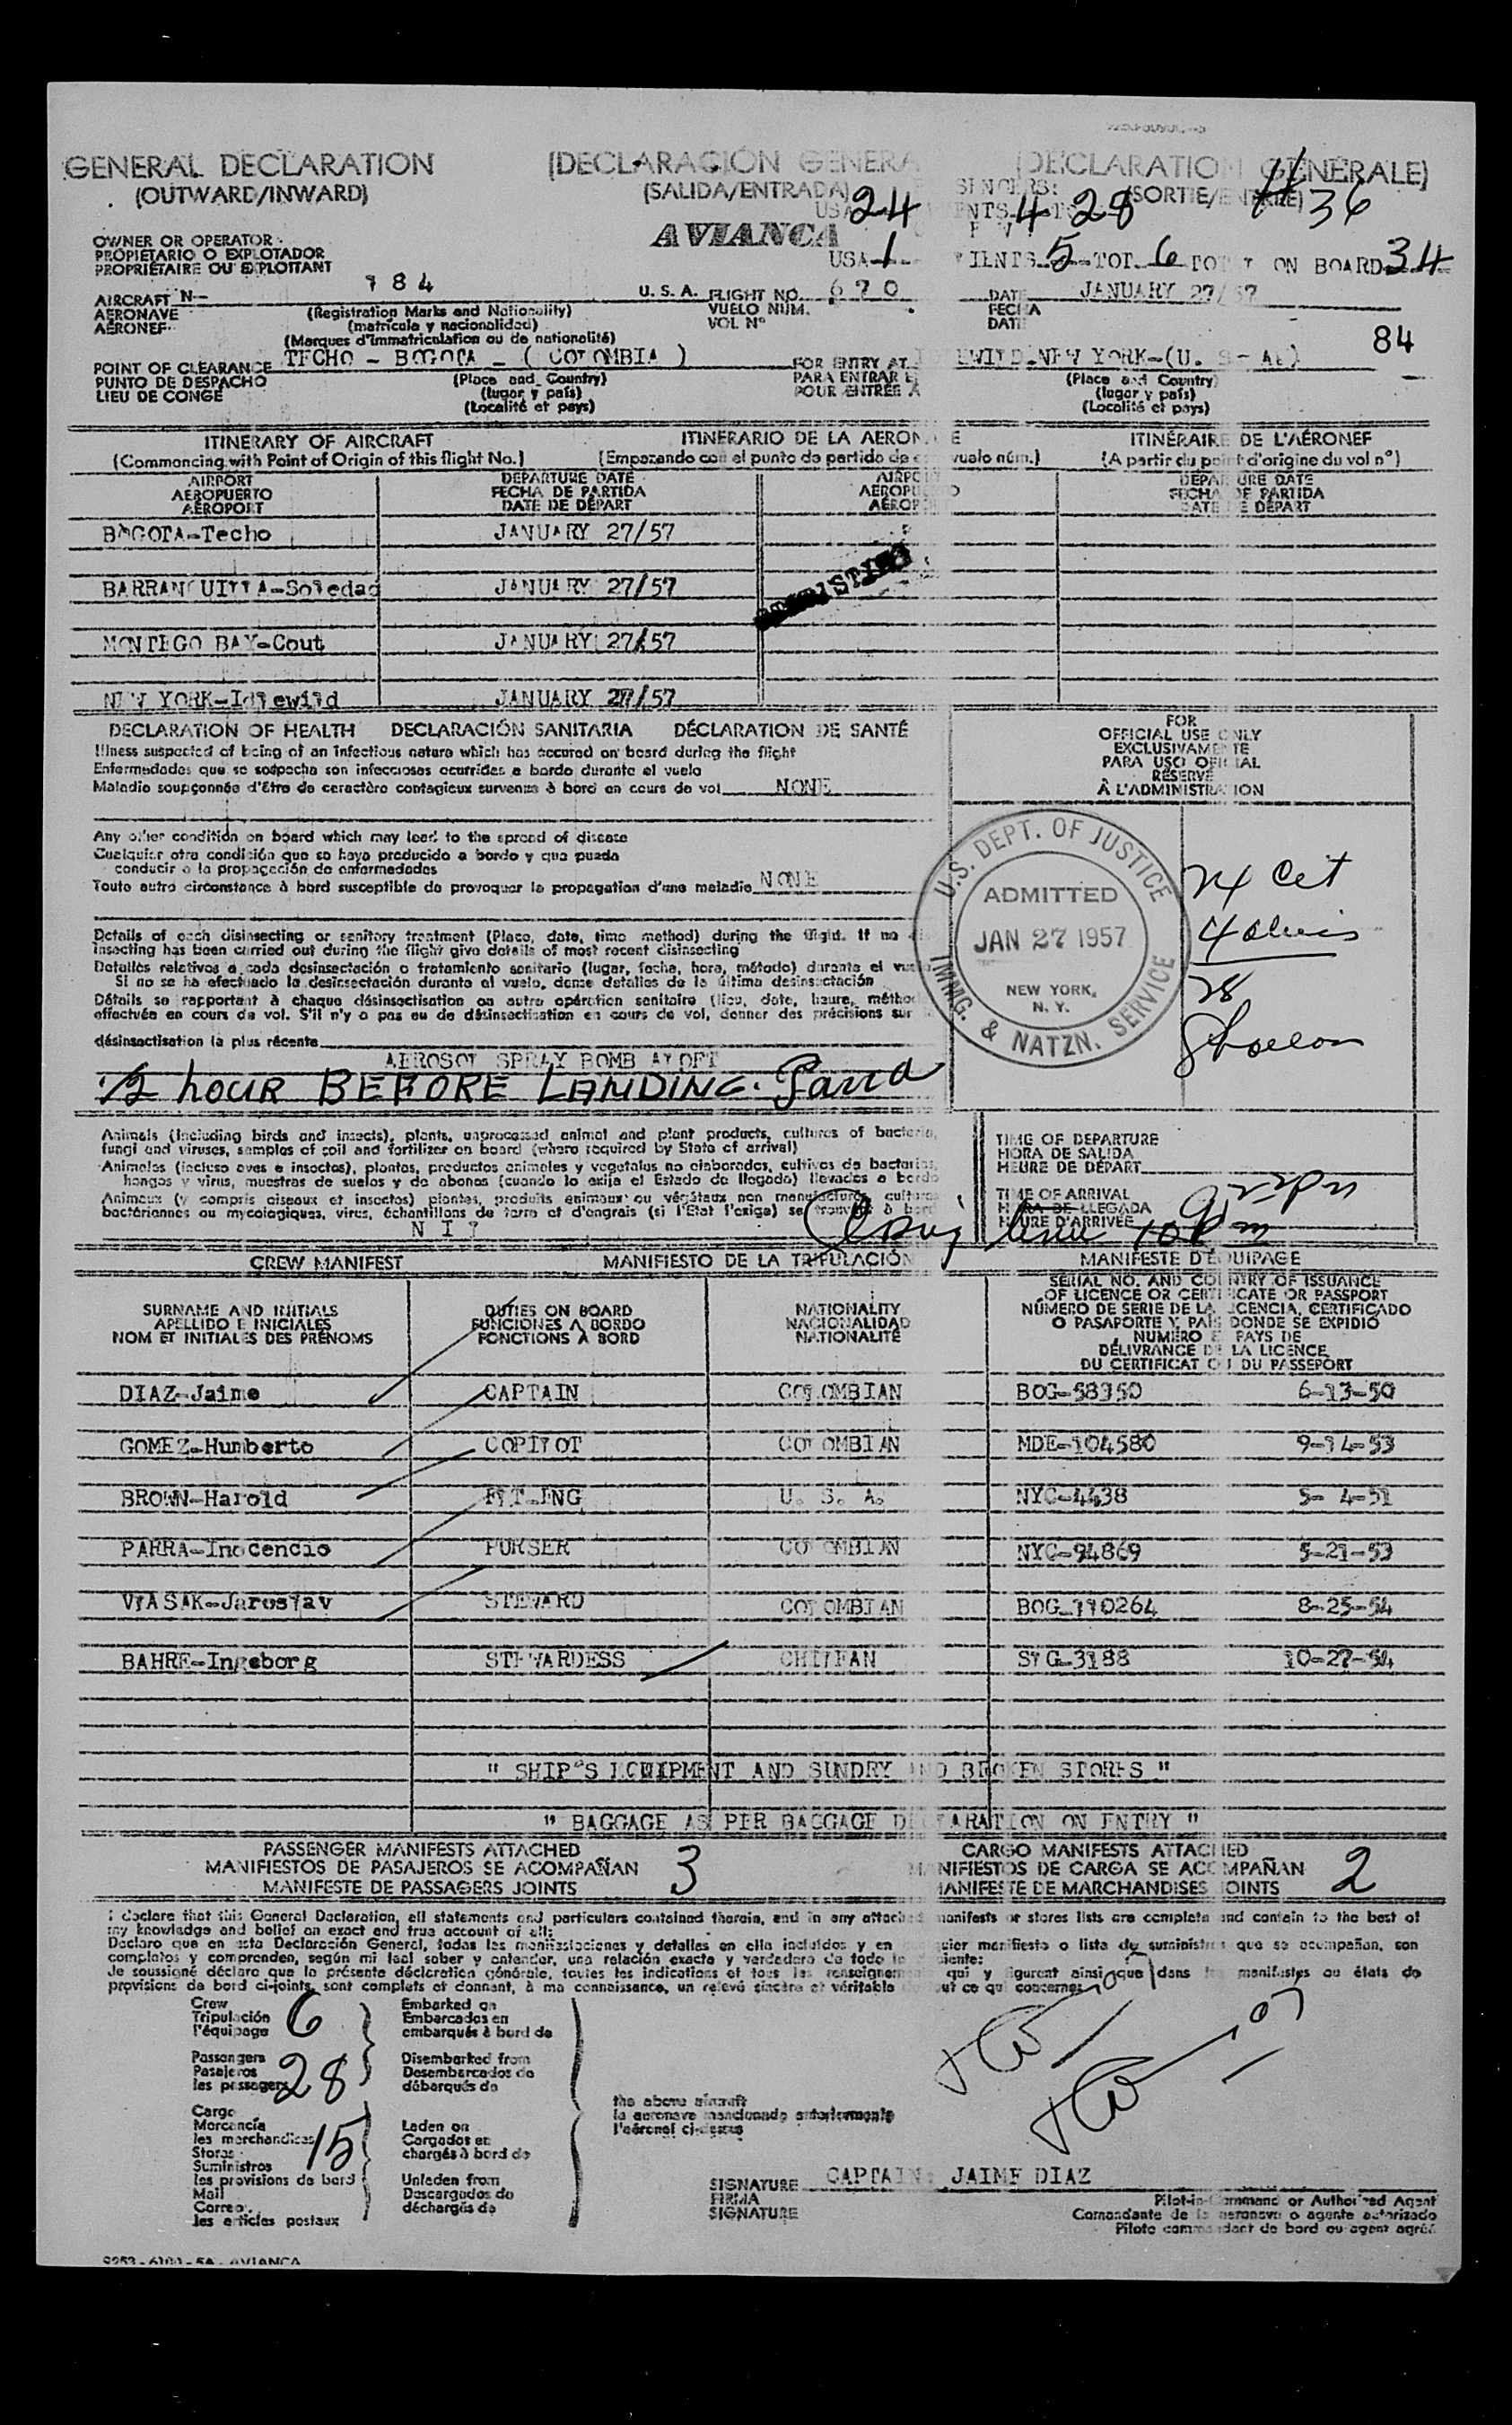 GENERAL DECLARATION (DECLARACIÓN GENERA (DECLARATION GÉNÉRALE)
(OUTWARD/INWARD) (SALIDA/ENTRADA) (SORTIE/ENTRÉE) 36
USA 24 4 28
AVIANCA
USA 1 5 TOT 6 ON BOARD 34
OWNER OR OPERATOR
PROPIETARIO O EXPLOTADOR
PROPRIÉTAIRE OU EXPLOITANT
AIRCRAFT N- 784 U. S. A. FLIGHT NO. 670 DATE JANUARY 27/57
AERONAVE (Registration Marks and Nationality) VUELO NÚM. FECHA
AÉRONEF (matrícula y nacionalidad) VOL Nº DATE
(Marques d'immatriculation ou de nationalité) 84
POINT OF CLEARANCE TECHO - BOGOTA - ( COLOMBIA ) FOR ENTRY AT EWILD-NEW YORK-(U. S - A.)
PUNTO DE DESPACHO (Place and Country) PARA ENTRAR E (Place and Country)
LIEU DE CONGÉ (lugar y país) POUR ENTRÉE A (lugar y país)
(Localité et pays) (Localité et pays)
ITINERARY OF AIRCRAFT ITINERARIO DE LA AERON E ITINÉRAIRE DE L'AÉRONEF
(Commencing with Point of Origin of this flight No.) (Empezando con el punto de partida de vuelo núm.) (A partir du point d'origine du vol nº)
AIRPORT DEPARTURE DATE AIRPO DEPARTURE DATE
AEROPUERTO FECHA DE PARTIDA AEROPUERTO FECHA DE PARTIDA
AÉROPORT DATE DE DÉPART AÉROP DATE DE DÉPART
BOGOTA-Techo JANUARY 27/57
BARRANQUILLA-Soledad JANUARY 27/57
MONTEGO BAY-Cout JANUARY 27/57
NEW YORK-Idlewild JANUARY 27/57
DECLARATION OF HEALTH DECLARACIÓN SANITARIA DÉCLARATION DE SANTÉ
Illness suspected of being of an infectious nature which has occured on board during the flight
Enfermedades que se sospecha son infecciosas ocurridas a bordo durante el vuelo
Maladie soupçonnée d'être de caractère contagieux survenue à bord en cours de vol NONE
FOR
OFFICIAL USE ONLY
EXCLUSIVAMENTE
PARA USO OFICIAL
RÉSERVÉ
À L'ADMINISTRATION
Any other condition on board which may lead to the spread of disease
Cualquier otra condición que se haya producido a bordo y que pueda
conducir a la propagación de enfermedades
Toute autre circonstance à bord susceptible de provoquer la propagation d'une maladie NONE
U.S. DEPT. OF JUSTICE
ADMITTED
JAN 27 1957
NEW YORK,
N. Y.
IMMG. & NATZN. SERVICE
24 Cit
4 aliens
28
Details of each disinsecting or sanitary treatment (Place, date, time method) during the flight. If no
insecting has been carried out during the flight give details of most recent disinsecting
Detalles relativos a cada desinsectación o tratamiento sanitario (lugar, fecha, hora, método) durante el vuelo
Si no se ha efectuado la desinsectación durante el vuelo, dense detalles de la última desinsectación
Détails se rapportant à chaque désinsectisation ou autre opération sanitaire (lieu, date, heure, méthod
effectuée en cours de vol. S'il n'y a pas eu de désinsectisation en cours de vol, donner des précisions sur
désinsectisation la plus récente
AEROSOL SPRAY BOMB ALOFT
1/2 HOUR BEFORE LANDING. Parra
Animals (including birds and insects), plants, unprocessed animal and plant products, cultures of bacteria,
fungi and viruses, samples of soil and fertilizer on board (where required by State of arrival)
Animales (incluso aves e insectos), plantas, productos animales y vegetales no elaborados, cultivos de bacterias,
hongos y virus, muestras de suelos y de abonos (cuando lo exija el Estado de llegada) llevados a bordo
Animaux (y compris oiseaux et insectes) plantes, produits animaux ou végétaux non manufacturés, cultures
bactériennes ou mycologiques, virus, échantillons de terre et d'engrais (si l'Etat l'exige) se trouvant à bord
NIL
TIME OF DEPARTURE
HORA DE SALIDA
HEURE DE DÉPART
TIME OF ARRIVAL
HORA DE LLEGADA
HEURE D'ARRIVÉE
CREW MANIFEST MANIFIESTO DE LA TRIPULACIÓN MANIFESTE D'ÉQUIPAGE
SURNAME AND INITIALS DUTIES ON BOARD NATIONALITY SERIAL NO. AND COUNTRY OF ISSUANCE
APELLIDO E INICIALES FUNCIONES A BORDO NACIONALIDAD OF LICENCE OR CERTIFICATE OR PASSPORT
NOM ET INITIALES DES PRÉNOMS FONCTIONS À BORD NATIONALITÉ NÚMERO DE SERIE DE LA LICENCIA, CERTIFICADO
O PASAPORTE Y PAÍS DONDE SE EXPIDIÓ
NUMÉRO E PAYS DE
DÉLIVRANCE DE LA LICENCE
DU CERTIFICAT OU DU PASSEPORT
DIAZ-Jaime CAPTAIN COLOMBIAN BOG-58350 6-13-50
GOMEZ-Humberto COPILOT COLOMBIAN MDE-104580 9-14-53
BROWN-Harold FLT-ING U. S. A. NYC-4438 5- 4-51
PARRA-Inocencio PURSER COLOMBIAN NYC-94869 5-21-53
VLASAK-Jaroslav STEWARD COLOMBIAN BOG-110264 8-25-54
BAHRE-Ingeborg STEWARDESS CHILEAN STG-3188 10-27-54
" SHIP'S EQUIPMENT AND SUNDRY AND BROKEN STORES "
" BAGGAGE AS PER BAGGAGE DECLARATION ON ENTRY "
PASSENGER MANIFESTS ATTACHED CARGO MANIFESTS ATTACHED
MANIFIESTOS DE PASAJEROS SE ACOMPAÑAN 3 MANIFIESTOS DE CARGA SE ACOMPAÑAN 2
MANIFESTE DE PASSAGERS JOINTS MANIFESTE DE MARCHANDISES JOINTS
I declare that this General Declaration, all statements and particulars contained therein, and in any attached manifests or stores lists are complete and contain to the best of
my knowledge and belief an exact and true account of all:
Declaro que en esta Declaración General, todas las manifestaciones y detalles en ella incluídos y en quier manifiesto o lista de suministros que se acompañan, son
completos y comprenden, según mi leal saber y entender, una relación exacta y verdadera de todo lo siguiente:
Je soussigné déclare que la présente déclaration générale, toutes les indications et tous les renseignements qui y figurent ainsi que dans les manifestes ou états de
provisions de bord ci-joints, sont complets et donnent, à ma connaissance, un relevé sincère et véritable de tout ce qui concerne:
Crew Embarked on
Tripulación 6 Embarcados en
l'équipage embarqués à bord de
Passengers Disembarked from
Pasajeros 28 Desembarcados de
les passagers débarqués de
the above aircraft
la aeronave mencionada anteriormente
l'aéronef ci-dessus
Cargo
Mercancía Laden on
les marchandises 15 Cargados en
Stores chargés à bord de
Suministros
les provisions de bord Unladen from
Mail Descargados de
Correo déchargés de
les articles postaux
SIGNATURE CAPTAIN: JAIME DIAZ
FIRMA
SIGNATURE
Pilot-in-Command or Authorized Agent
Comandante de la aeronave o agente autorizado
Pilote commandant de bord ou agent agréé
9253-6100-5A-AVIANCA